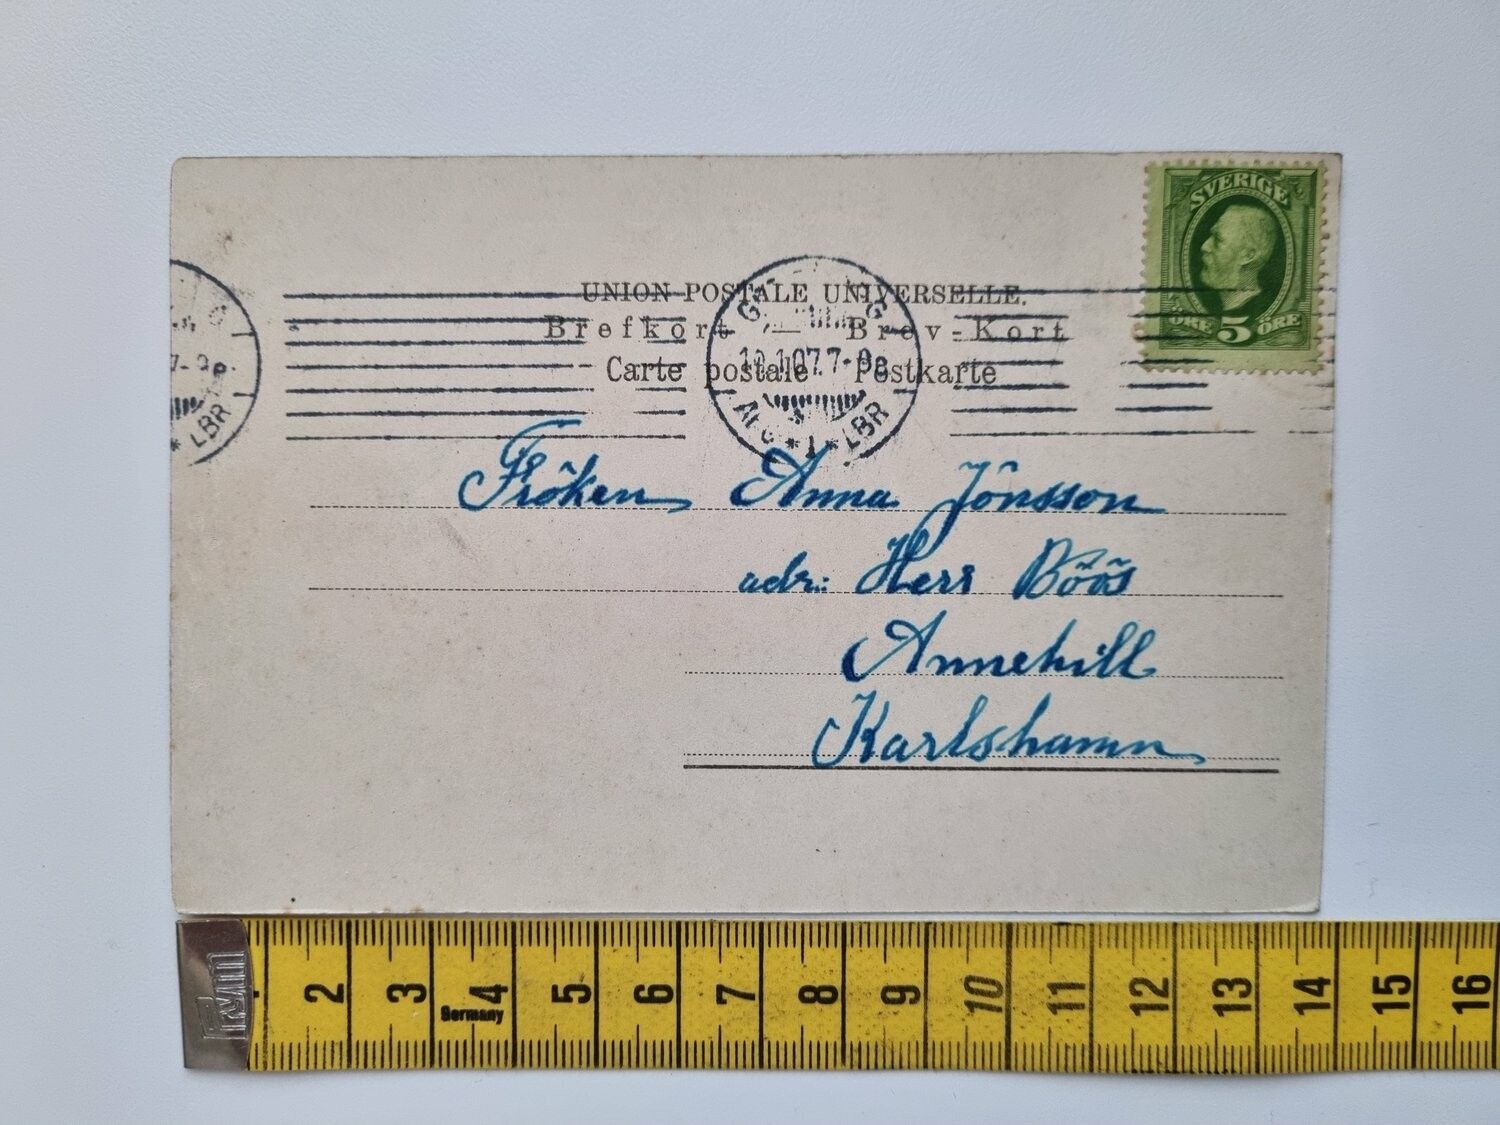 SVERIGE
ÖRE 5 ÖRE
UNION POSTALE UNIVERSELLE.
Brefkort — Brev-Kort
Carte postale Postkarte
1.07 7-
LBR
* 1 *
LBR
Fröken Anna Jönsson
adr: Herr Böös
Annehill
Karlshamn
Prym
Germany
2 3 4 5 6 7 8 9 10 11 12 13 14 15 16